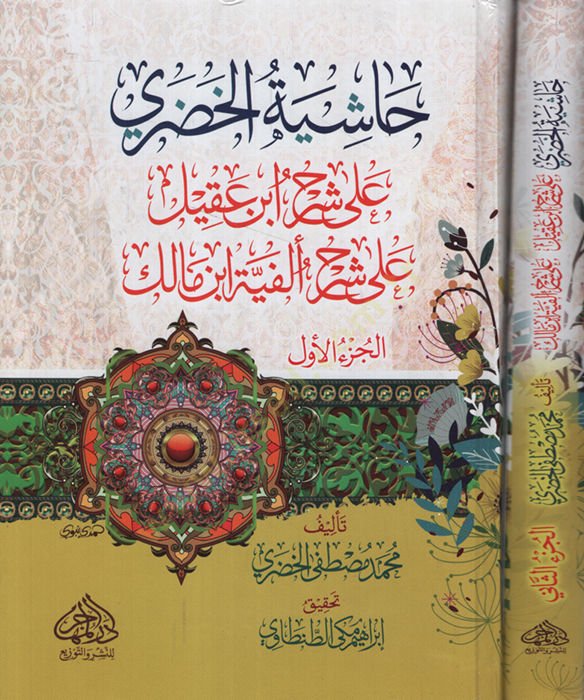 حاشية الخضري
على شرح ابن عقيل
على شرح ألفية ابن مالك
الجزء الأول
تأليف
محمد مصطفى الخضري
تحقيق
إبراهيم مكي الطنطاوي
للنشر والتوزيع
حاشية الخضري
على شرح ابن عقيل على شرح ألفية ابن مالك
تأليف
محمد مصطفى الخضري
الجزء الثاني
للنشر والتوزيع